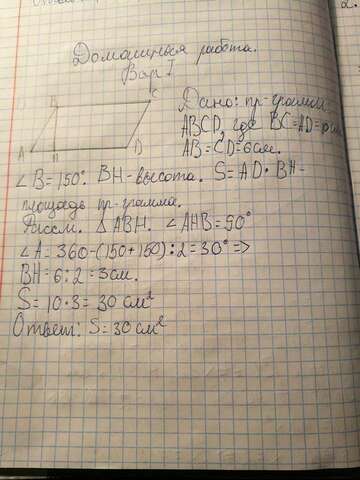 Домашняя работа.
Вар I
B C
A H D
Дано: пр-грамм
ABCD, где BC=AD=
AB=CD=6см.
∠B=150°. BH-высота. S=AD·BH-
площадь пр-грамма.
Рассм. △ABH. ∠AHB=90°
∠A=360-(150+150):2=30°=>
BH=6:2=3см.
S=10·3=30 см²
Ответ: S=30 см²